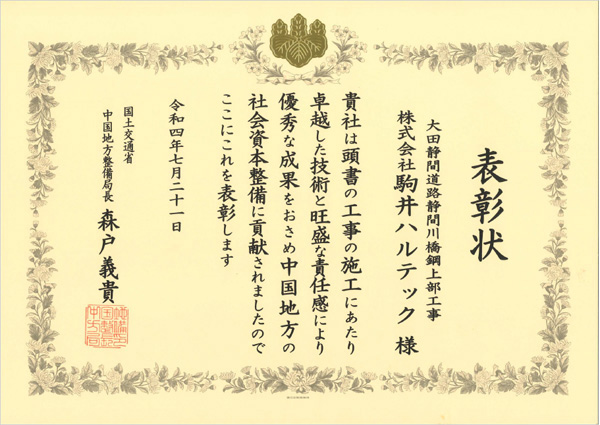 表彰状
大田静間道路静間川橋鋼上部工事
株式会社駒井ハルテック 様
貴社は頭書の工事の施工にあたり
卓越した技術と旺盛な責任感により
優秀な成果をおさめ中国地方の
社会資本整備に貢献されましたので
ここにこれを表彰します
令和四年七月二十一日
国土交通省
中国地方整備局長 森戸義貴